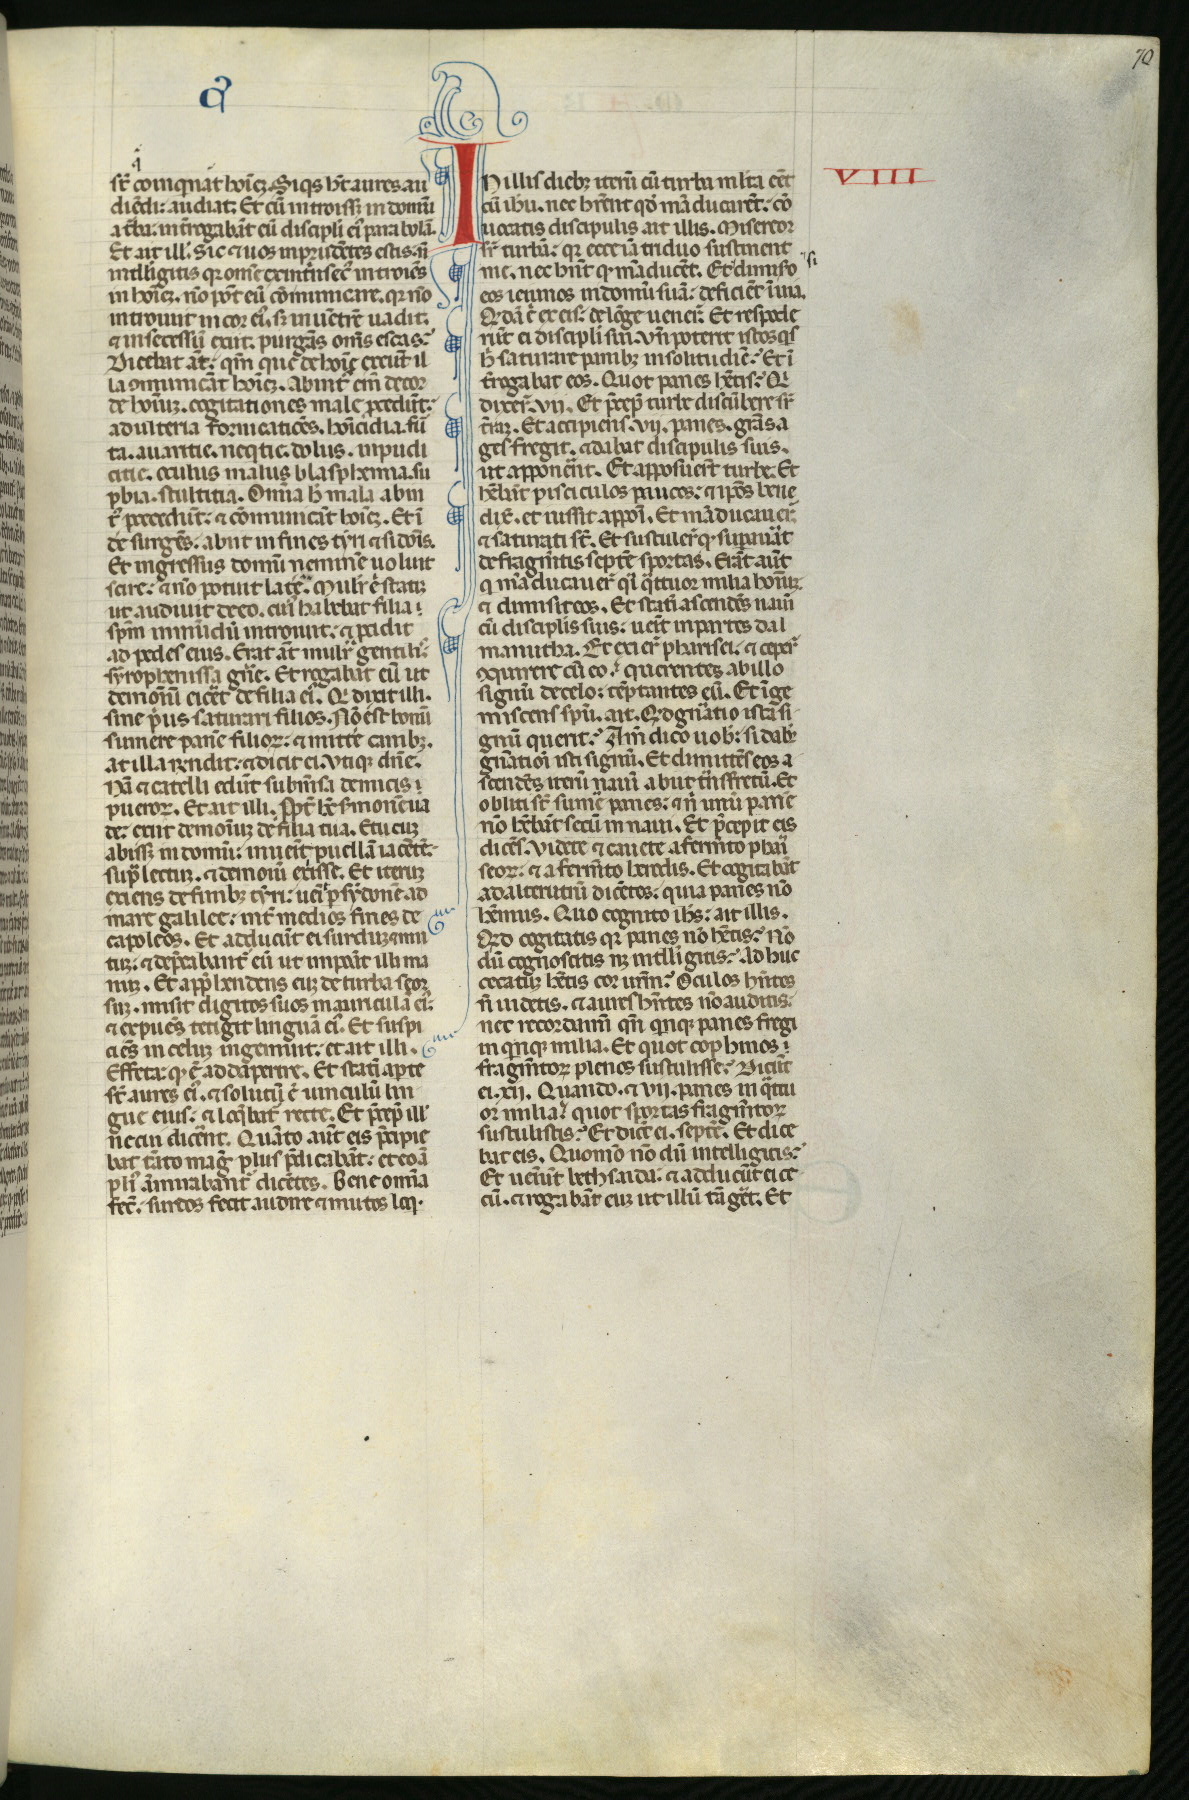 70
VIII
sr̄ coinquināt hoīeꝫ. Siq̇s hꝫ̄t aures au
diēdi: audiat. Et cū introissꝫ in domū
a t̄ba: int̄rogabāt eū discipli eī parabolā.
Et ait ill̄. Sic ⁊ uos inprudētes estis. ñ
intelligitis qꝛ om̄e extrinsecꝰ introiēs
in hoīeꝫ. nō pōt eū cōmunicare. qꝛ nō
introiuit in cor eiꝰ. sꝫ in uētrē uadit.
⁊ in secessū exit. purgās om̄s escas.
Dicebat āt. qm̄ que de hoīe exeūt il
la cōmunicāt hoīeꝫ. Abint᷑ eīm de cor
de hoīuꝫ. cogitationes male ꝓcedūt.
adulteria. fornicatiōes. hoīcidia. fur
ta. auaritie. neqͥtie. dolus. inpudi
citie. oculus malus. blasphemia. su
ꝑbia. stultitia. Omīa h̄ mala ab in
t᷑ procedūt: ⁊ cōmunicāt hoīeꝫ. Et ī
de surgēs. abiit in fines tyri ⁊ sidoīs.
Et ingressus domū neminē uoluit
scire: ⁊ nō potuit latē. Mulr̄ ē statiꝫ
ut audiuit de eo. cuiꝰ habebat filia
sp̄m inmūdū introiuit: ⁊ ꝓcidit
ad pedes eius. Erat āt mulr̄ gentilis.
syrophenissa gn̄e. Et rogabat eū ut
demoniū eicēt de filia eiꝰ. Qͥ dixit illi.
sine pͥus saturari filios. Nō ēst bonū
sumere panē filioꝝ: ⁊ mittē canibꝫ.
at illa rn̄dit: ⁊ dicit ei. Vtiqꝫ dn̄e.
Nā ⁊ catelli edūt sub mn̄sa de micis
pueroꝝ. Et ait illi. Ꝓpt̄ hc̄ s̄monē ua
de: exiit demoniuꝫ de filia tua. Et cuꝫ
abissꝫ in domū: inuēit puellā iacētē
sup̄ lectuꝫ. ⁊ demoniū exisse. Et iteruꝫ
exiens de finibꝫ tyri: ueīt ꝑ sydonē ad
mare galilee: int̄ medios fines de
capoleos. Et adducūt ei surduꝫ ⁊ mu
tuꝫ: ⁊ dep̄cabant̄ eū ut inponāt illi ma
nuꝫ. Et app̄hendens eūꝫ de turba seor
suꝫ. misit digitos suos in auriculā eiꝰ:
⁊ expuēs tetigit linguā eiꝰ. Et suspi
ciēs in celuꝫ ingemuit: et ait illi.
Effeta: qͩ ē adaꝑerire. Et statī aꝑte
sr̄ aures eiꝰ. ⁊ solutū ē uinculū lin
gue eius: ⁊ loqͤbat᷑ recte. Et p̄cep̄ ill̄
ne cui dicēnt. Quāto aūt eis p̄cipie
bat tāto mag̅ plus p̄dicabāt: et eo ā
pliꝰ āmirabant᷑ dicētes. Bene omīa
fec̄. surdos fecit audire ⁊ mutos loqͥ.
In illis diebꝫ iterū cū turba ml̄ta eēt
cū ihū. nec hr̄ent qd̄ māducarēt: cō
uocatis discipulis ait illis. Misereor
sr̄ turbā: qꝛ ecce iā triduo sustinent
me. nec hn̄t qͩ māducēt. Et dimiso
si
eos ieiunos in domū suā: deficiēt ī uia.
Qͥdā ē ex eis: de lōge uener̄. Et respōde
rūt ei discipli sui. Vn̄ poterit istos qͥs
h̄ saturare panibꝫ in solitudiē? Et ī
t̄rogabat eos. Quot panes hētis? Qͥ
dixer̄. vii. Et p̄cep̄ turbe discūbere sr̄
t̄raꝫ. Et accipiens. vii. panes. grās a
gēs fregit. ⁊ dabat discipulis suis.
ut apponēnt. Et apposuer̄t turbe. Et
hēbāt pisciculos paucos: ⁊ ip̄os bene
dix̄. et iussit apponī. Et māducauer̄.
⁊ saturati sr̄. Et sustuler̄ qͩ supauāt
de fragm̄tis septē sportas. Erāt aūt
qͥ māducauer̄ qͣi qͣttuor milia hoīuꝫ.
⁊ dimisit eos. Et statī ascendēs nauī
cū disciplis suis: uēit in partes dal
manutha. Et exier̄ pharisei. ⁊ ceper̄
ꝯquirere cū eo. querentes ab illo
signū de celo: tēptantes eū. Et īge
miscens spū. ait. Qͥd gn̄atio ista si
gnū querit? Am̄ dico uob̄: si dabit᷑
gn̄ationi isti signū. Et dimittēs eos a
scendēs iterū nauī abiit tn̄sfretū. Et
obliti sr̄ sumē panes: ⁊ nͥ unū panē
nō hēbāt secū in naui. Et p̄cepit eis
dicēs. Videte ⁊ cauete a ferm̄to phaīi
seoꝝ: ⁊ a ferm̄to herodis. Et cogitabāt
ad alterutrū dicētes: quia panes nō
hēmus. Quo cognito ihs̄: ait illis.
Qͥd cogitatis qꝛ panes nō hētis? Nō
dū cognoscitis nꝫ intelligitis? Ad huc
cecatuꝫ hētis cor ur̄m? Oculos hn̄tes
ñ uidetis. ⁊ aures hn̄tes nō auditis.
nec recordamī qn̄ qͥnqꝫ panes fregi
in qͥnqꝫ milia. Et quot cophinos
fragm̄toꝝ plenos sustulistis? Dicūt
ei. xii. Quando. ⁊ vii. panes in qͣttu
or milia? quot sportas fragm̄toꝝ
sustulistis? Et dicūt ei. septē. Et dice
bat eis. Quomō nō dū intelligitis?
Et ueniūt bethsaidā: ⁊ adducūt ei ce
cū. ⁊ rogabāt euꝫ ut illū tāgēt. Et